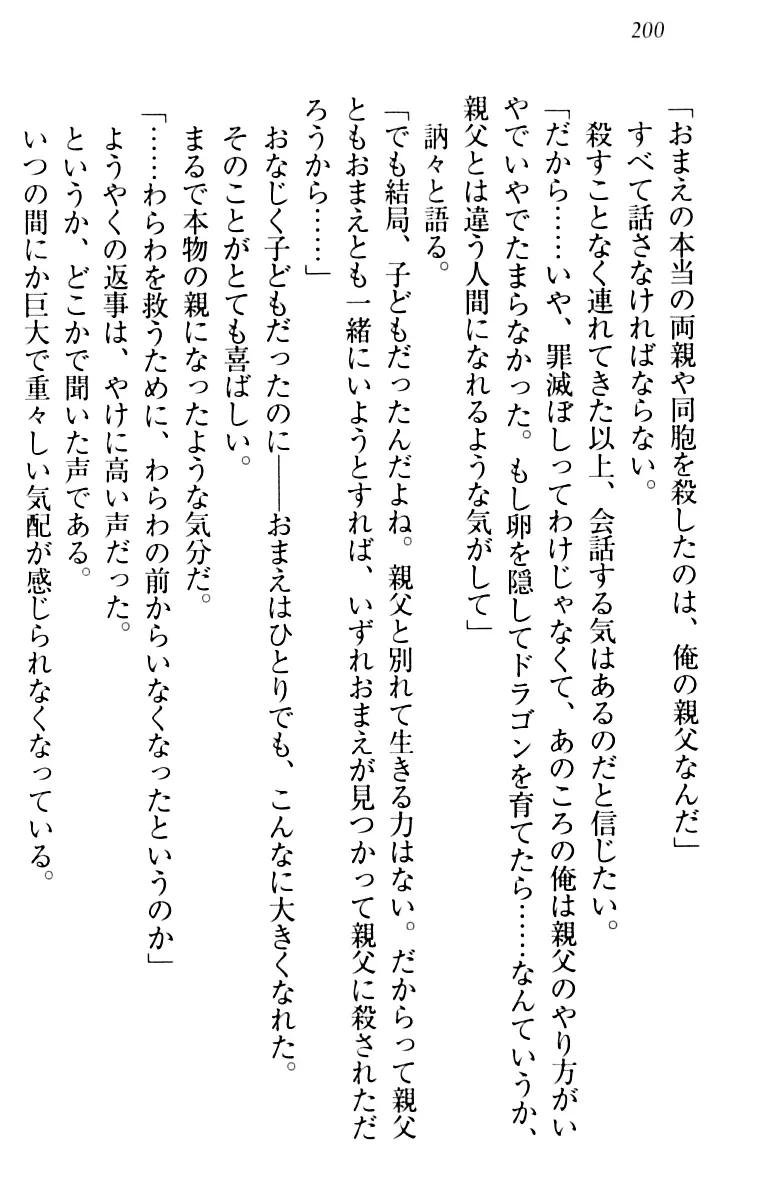 200
「おまえの本当の両親や同胞を殺したのは、俺の親父なんだ」
すべて話さなければならない。
殺すことなく連れてきた以上、会話する気はあるのだと信じたい。
「だから……いや、罪滅ぼしってわけじゃなくて、あのころの俺は親父のやり方がい
やでいやでたまらなかった。もし卵を隠してドラゴンを育てたら……なんていうか、
親父とは違う人間になれるような気がして」
訥々と語る。
「でも結局、子どもだったんだよね。親父と別れて生きる力はない。だからって親父
ともおまえとも一緒にいようとすれば、いずれおまえが見つかって親父に殺されただ
ろうから……」
おなじく子どもだったのに――おまえはひとりでも、こんなに大きくなれた。
そのことがとても喜ばしい。
まるで本物の親になったような気分だ。
「……わらわを救うために、わらわの前からいなくなったというのか」
ようやくの返事は、やけに高い声だった。
というか、どこかで聞いた声である。
いつの間にか巨大で重々しい気配が感じられなくなっている。